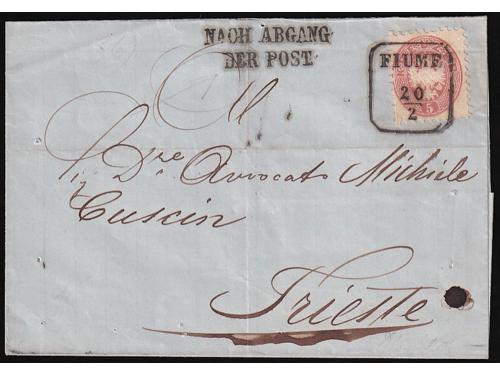 NACH ABGANG
DER POST
FIUME
20
2
5
Dre Avvocato Michiele
Cuscin
Trieste